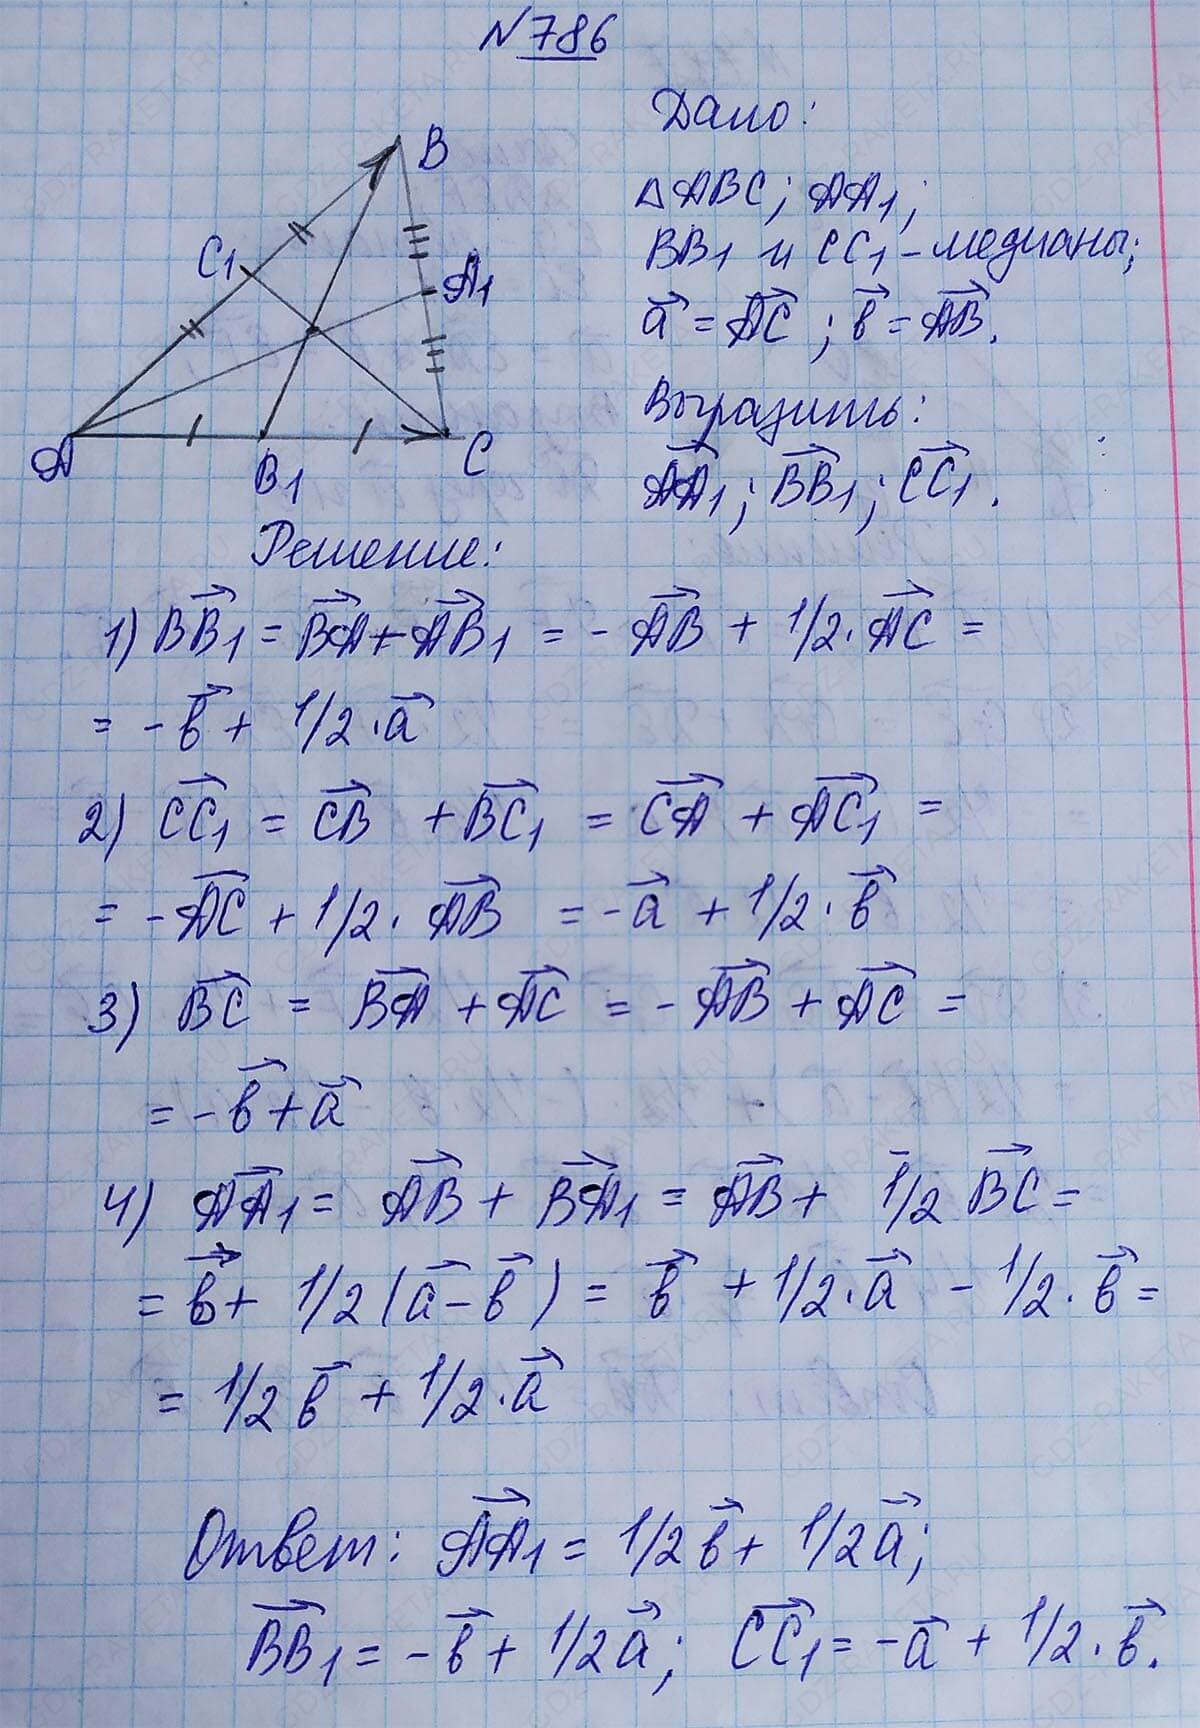 №786
B
C1
A1
A
B1
C
Дано:
△ABC; AA1;
BB1 и CC1 - медианы;
a⃗ = AC⃗ ; b⃗ = AB⃗.
Выразить:
AA1⃗; BB1⃗; CC1⃗.
Решение:
1) BB1⃗ = BA⃗ + AB1⃗ = - AB⃗ + 1/2 · AC⃗ =
= - b⃗ + 1/2 · a⃗
2) CC1⃗ = CB⃗ + BC1⃗ = CA⃗ + AC1⃗ =
= - AC⃗ + 1/2 · AB⃗ = - a⃗ + 1/2 · b⃗
3) BC⃗ = BA⃗ + AC⃗ = - AB⃗ + AC⃗ =
= - b⃗ + a⃗
4) AA1⃗ = AB⃗ + BA1⃗ = AB⃗ + 1/2 BC⃗ =
= b⃗ + 1/2 (a⃗ - b⃗) = b⃗ + 1/2 · a⃗ - 1/2 · b⃗ =
= 1/2 b⃗ + 1/2 · a⃗
Ответ: AA1⃗ = 1/2 b⃗ + 1/2 a⃗;
BB1⃗ = - b⃗ + 1/2 a⃗; CC1⃗ = - a⃗ + 1/2 · b⃗.